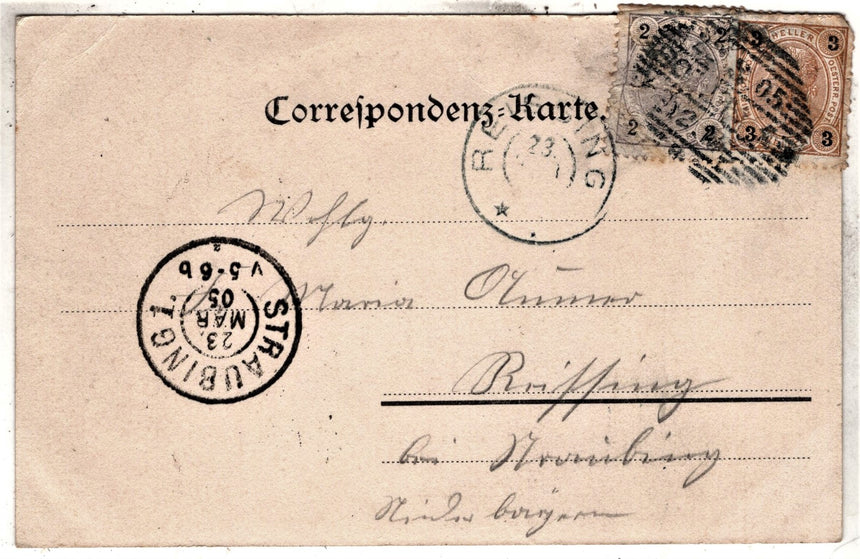 Correspondenz-Karte.
2 2 2 2
3 HELLER 3
OESTERR. POST
3 3
05
REISSING
23
STRAUBING 1.
23
MAR
05
V 5-6b
2
Wohlg.
Maria
Reissing
bei Straubing
Niederbayern